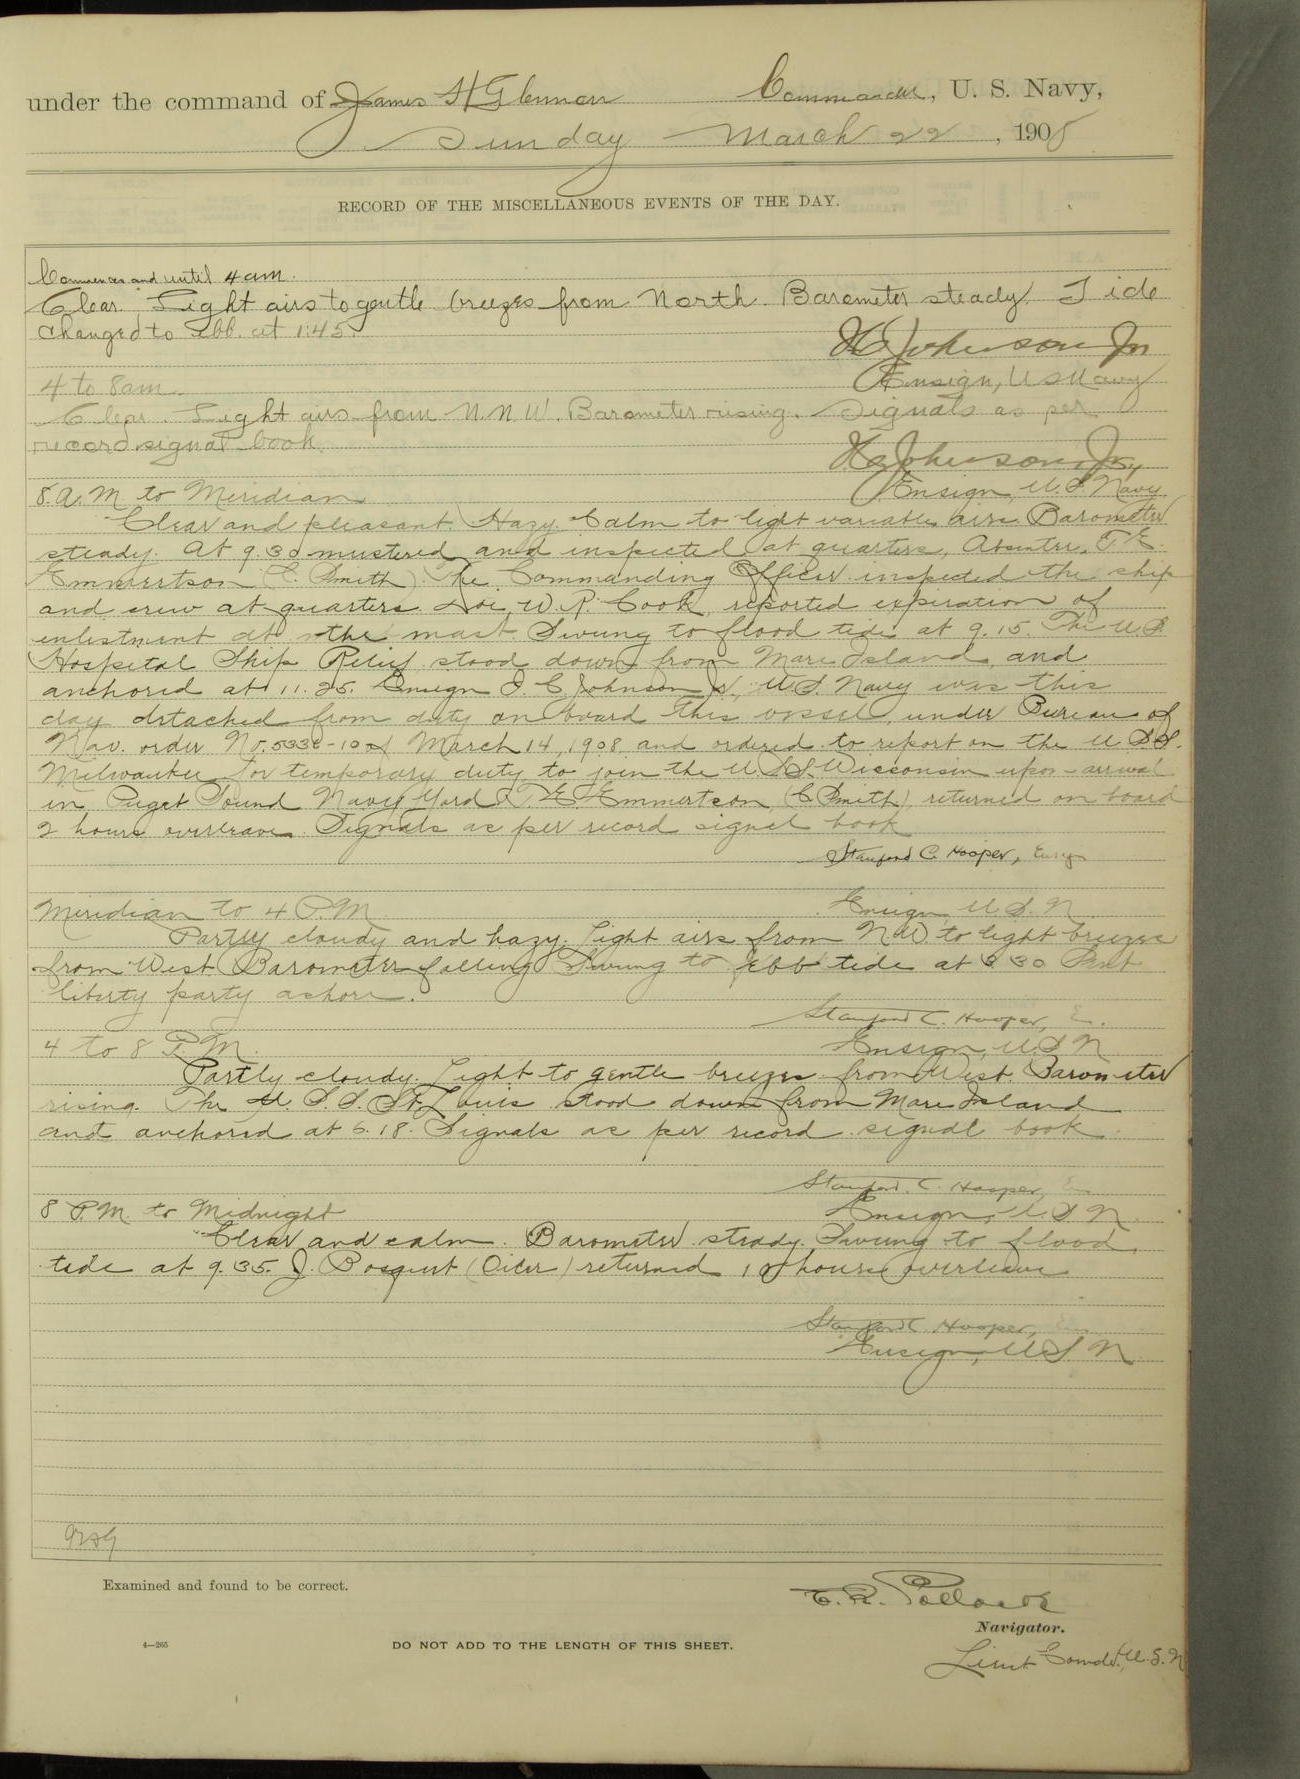 under the command of James H Glennon Commander, U. S. Navy,
Sunday March 22, 1908
RECORD OF THE MISCELLANEOUS EVENTS OF THE DAY.
Commences and until 4 am.
Clear. Light airs to gentle breezes from North. Barometer steady. Tide
changed to ebb. at 1:45.
Johnson Jr
Ensign, U S Navy
4 to 8 am.
Clear. Light airs from N.N.W. Barometer rising. Signals as per
record signal book.
Johnson, Jr,
Ensign, U.S. Navy
8 A.M to Meridian
Clear and pleasant. Hazy. Calm to light variable airs. Barometer
steady. At 9.30 mustered and inspected at quarters, Absentee, T E.
Emmertson (C. Smith). The Commanding Officer inspected the ship
and crew at quarters. W. R. Cook reported expiration of
enlistment at the mast. Swung to flood tide at 9.15. The U.S.
Hospital Ship Relief stood down from Mare Island, and
anchored at 11.25. Ensign I. C. Johnson Jr., U.S. Navy was this
day detached from duty on board this vessel, under Bureau of
Nav. order No. March 14, 1908 and ordered to report on the U.S.S.
Milwaukee for temporary duty to join the U.S.S. Wisconsin upon arrival
in Puget Sound Navy Yard. T E Emmertson (C Smith) returned on board
2 hours overleave. Signals as per record signal book
Stanford C. Hooper,
Meridian to 4 P.M.
Ensign, U.S.N.
Partly cloudy and hazy. Light airs from NW to light breezes
from West. Barometer falling. Swung to ebb tide at 3.30 Sent
liberty party ashore.
Stanford C. Hooper,
4 to 8 P.M.
Ensign, U.S.N
Partly cloudy. Light to gentle breezes from West. Barometer
rising. The U.S.S. St. Louis stood down from Mare Island
and anchored at 6.18. Signals as per record signal book.
Stanford C. Hooper,
8 P.M. to Midnight
Ensign, U.S.N.
Clear and calm. Barometer steady. Swung to flood
tide at 9.35. J. Bosquit (Oiler) returned 10 hours overleave
Stanford C Hooper,
Ensign, U.S.N
Examined and found to be correct.
E. R. Pollock
Navigator.
4—265
DO NOT ADD TO THE LENGTH OF THIS SHEET.
Lieut Comdr, U.S.N